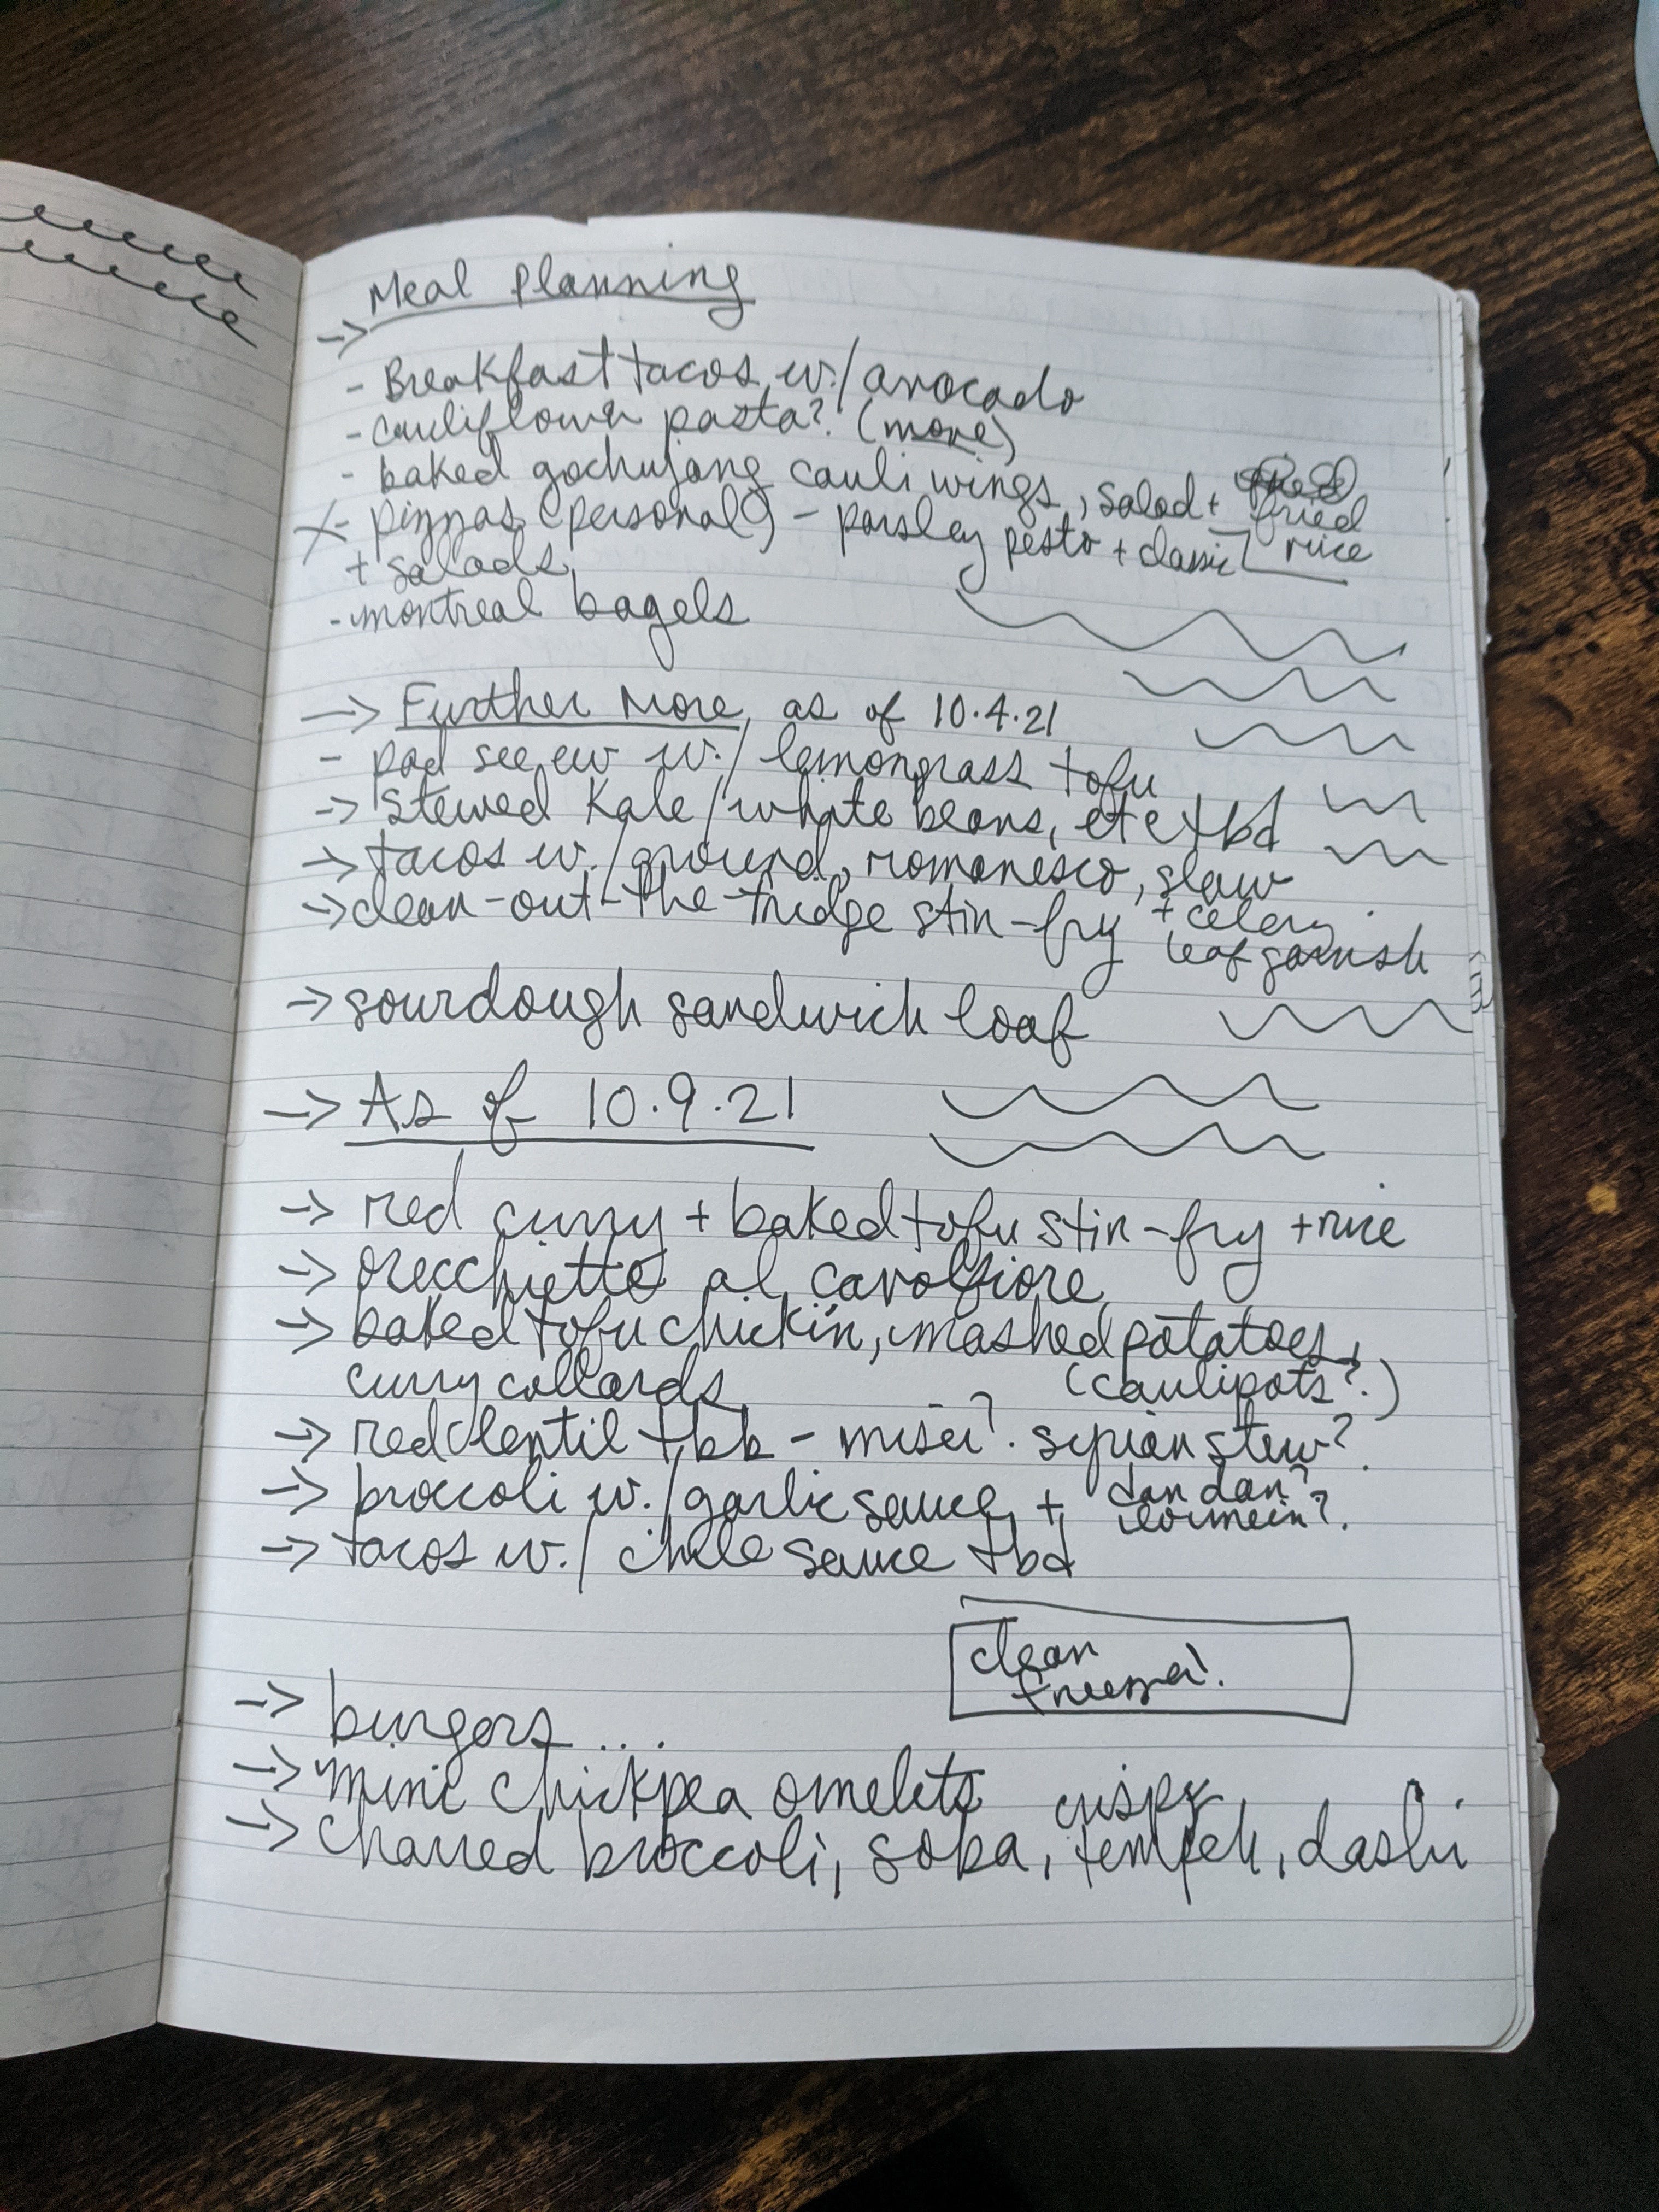 Meal Planning
->
- Breakfast tacos w./ avocado
- cauliflower pasta? (more)
- baked gochujang cauli wings, salad + fried
rice
X - pizzas (personal) - parsley pesto + classic
+ salads
- montreal bagels
-> Further More as of 10.4.21
- pad see ew w./ lemongrass tofu
-> stewed kale / white beans, etc tbd
-> tacos w./ ground, romanesco, slaw
-> clean-out-the-fridge stir-fry + celery
leaf garnish
-> sourdough sandwich loaf
-> As of 10.9.21
-> red curry + baked tofu stir-fry + rice
-> orecchiette al cavolfiore
-> baked tofu chickin, mashed potatoes,
curry collards (caulipots?)
-> red lentil - misir? syrian stew?
-> broccoli w./ garlic sauce + dan dan?
lo mein?
-> tacos w./ chile sauce tbd
clean
freezer!
-> burgers ...
-> mini chickpea omelets crispy
-> charred broccoli, soba, tempeh, dashi